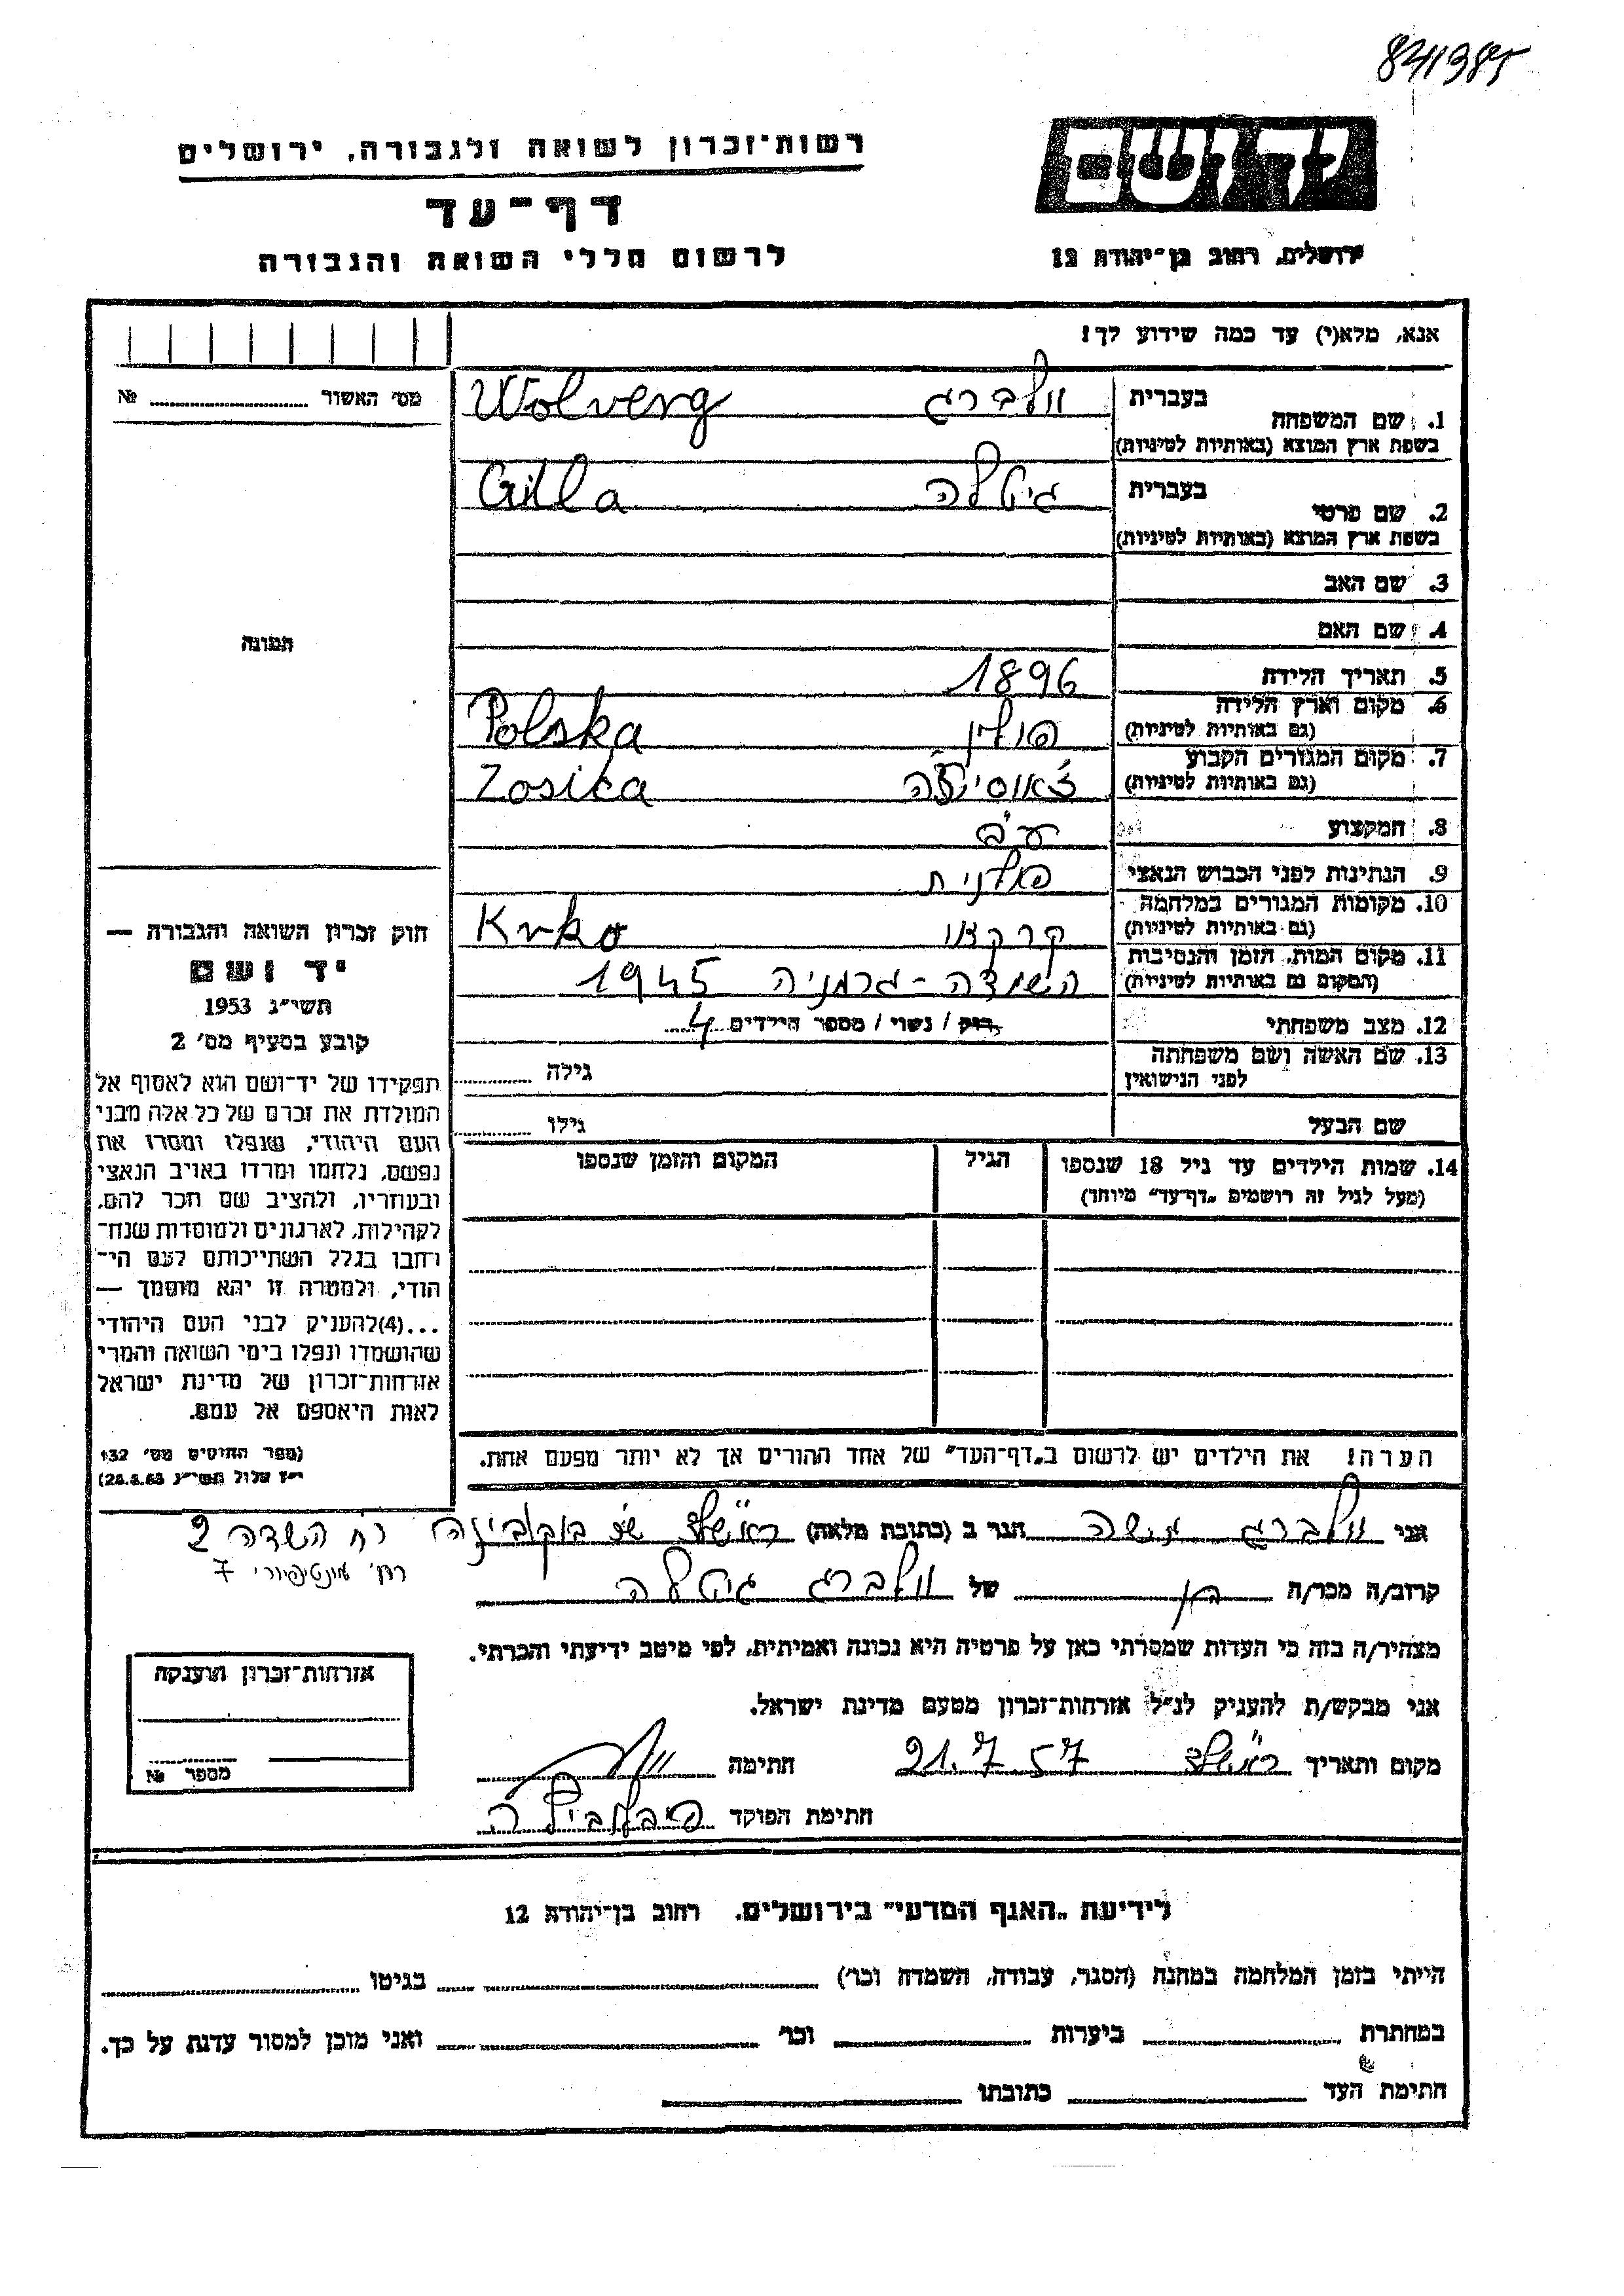 841385
יד ושם
ירושלים, רחוב בן־יהודה 12
רשות־זכרון לשואה ולגבורה, ירושלים
דף־עד
לרשום חללי השואה והגבורה
אנא, מלא(י) עד כמה שידוע לך!
מס׳ האשור № 
תמונה
1. שם המשפחה
בעברית וולברג Wolverg
בשפת ארץ המוצא (באותיות לטיניות)
2. שם פרטי
בעברית גיטלה Gitla
בשפת ארץ המוצא (באותיות לטיניות)
3. שם האב
4. שם האם
5. תאריך הלידה 1896
6. מקום וארץ הלידה פולין Polska
(גם באותיות לטיניות)
7. מקום המגורים הקבוע Zosika
(גם באותיות לטיניות)
8. המקצוע
9. הנתינות לפני הכבוש הנאצי פולנית
10. מקומות המגורים במלחמה קרקאו Krko
(גם באותיות לטיניות)
11. מקום המות, הזמן והנסיבות השמדה - גרמניה 1945
(המקום גם באותיות לטיניות)
12. מצב משפחתי רוק / נשוי / מספר הילדים 4
13. שם האשה ושם משפחתה לפני הנישואין גילה
שם הבעל גילו
14. שמות הילדים עד גיל 18 שנספו הגיל המקום והזמן שנספו
(מעל לגיל זה רושמים „דף־עד״ מיוחד)
הערה! את הילדים יש לרשום ב„דף־העד״ של אחד ההורים אך לא יותר מפעם אחת.
חוק זכרון השואה והגבורה —
יד ושם
תשי״ג 1953
קובע בסעיף מס׳ 2
תפקידו של יד־ושם הוא לאסוף אל
המולדת את זכרם של כל אלה מבני
העם היהודי, שנפלו ומסרו את
נפשם, נלחמו ומרדו באויב הנאצי
ובעוזריו, ולהציב שם וזכר להם,
לקהילות, לארגונים ולמוסדות שנח־
רבו בגלל השתייכותם לעם הי־
הודי, ולמטרה זו יהא מוסמך —
...(4)להעניק לבני העם היהודי
שהושמדו ונפלו בימי השואה והמרי
אזרחות־זכרון של מדינת ישראל
לאות היאספם אל עמם.
(ספר החוקים מס׳ 132
י״ז אלול תשי״ג 28.8.53)
אני וולברג משה הגר ב (כתובת מלאה) ראשל״צ רח השדה 2
רח׳ מונטיפיורי 7
קרוב/ה מכר/ה בן של וולברג גיטלה
מצהיר/ה בזה כי העדות שמסרתי כאן על פרטיה היא נכונה ואמיתית, לפי מיטב ידיעתי והכרתי.
אני מבקש/ת להעניק לנ״ל אזרחות־זכרון מטעם מדינת ישראל.
מקום ותאריך ראשל״צ 21.7.57 חתימה
חתימת הפוקד
אזרחות־זכרון הוענקה
מספר №
לידיעת „האגף המדעי״ בירושלים, רחוב בן־יהודה 12
הייתי בזמן המלחמה במחנה (הסגר, עבודה, השמדה וכו׳) בגיטו
במחתרת ביערות וכו׳ ואני מוכן למסור עדות על כך.
חתימת העד כתובתו